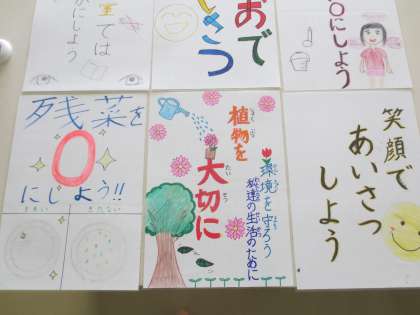 室では
にしよう
おで
いさつ
〇にしよう
残菜を
0
にしよう!!
きれい
きたない
植物を
大切に
たい
せつ
環境を守ろう
私達の生活のために
笑顔で
あいさつ
しよう